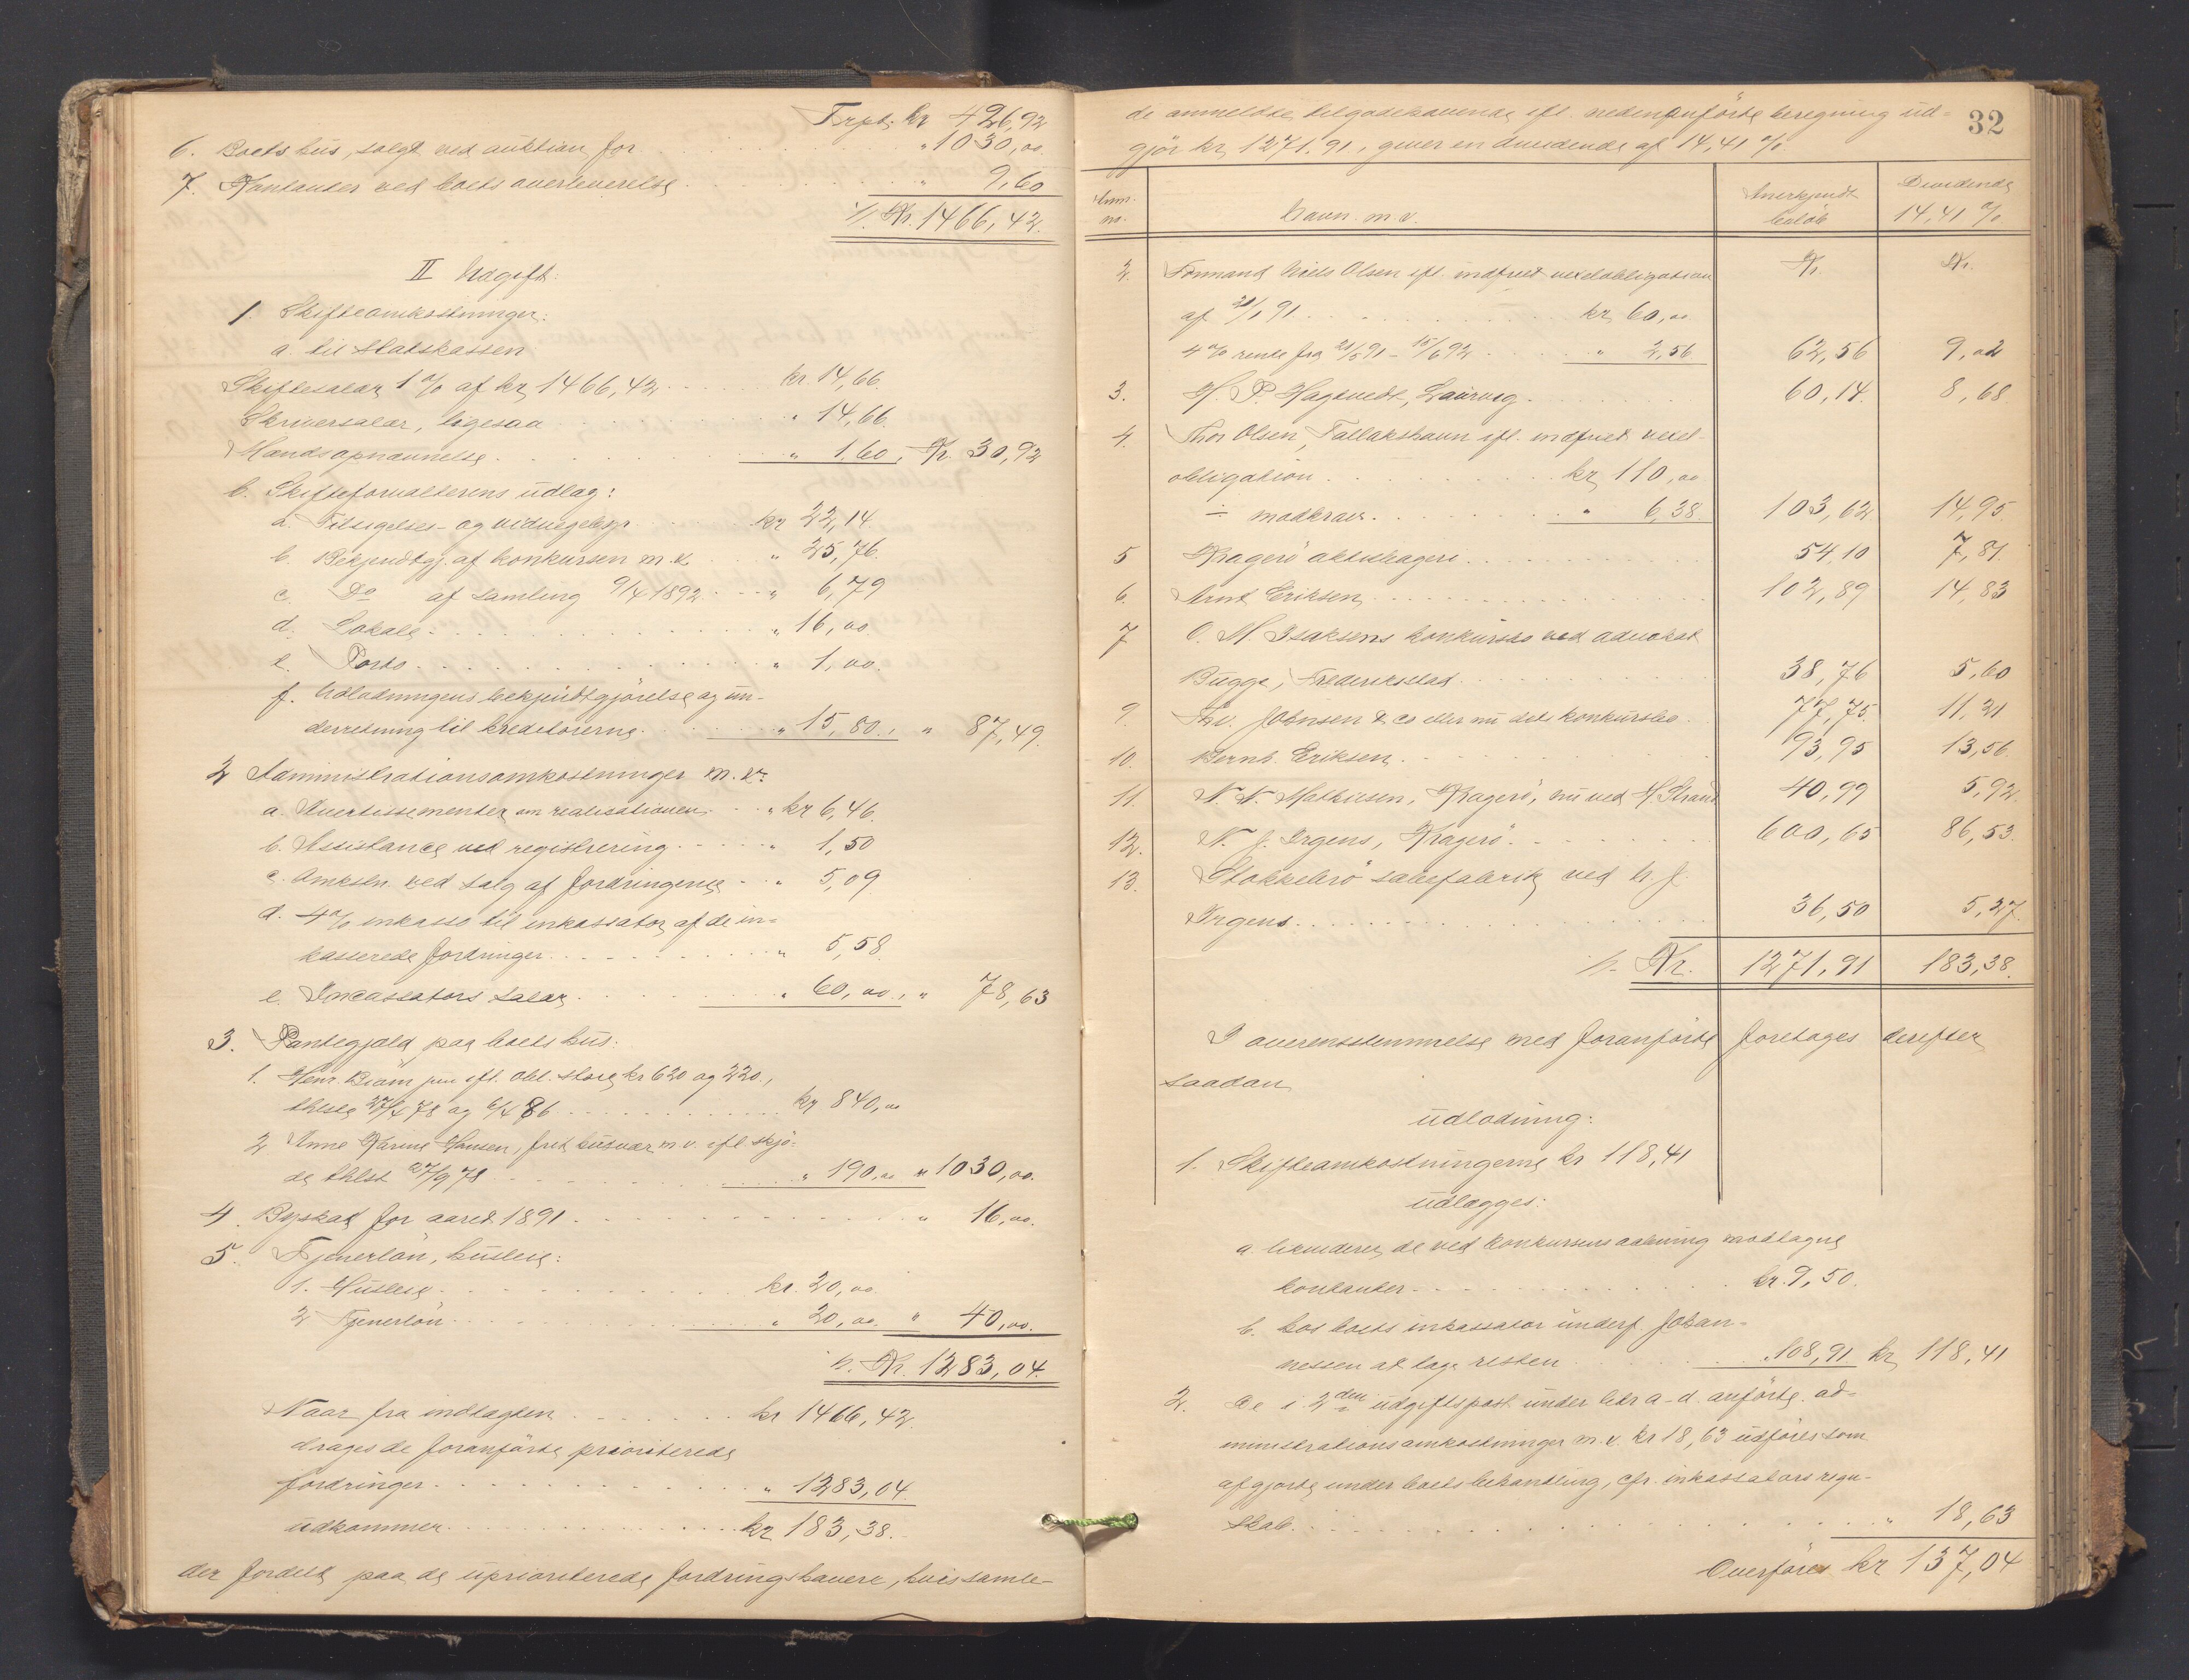 Trpt. kr 426,92
6. Boets hus, solgt ved auktion for " 1030,00
7. Kontanter ved boets overleverelse " 9,60
S. Kr. 1466,42.
II Udgift:
1. Skifteomkostninger:
a. til Statskassen
Skiftesalær 1 % af kr 1466,42 kr. 14,66.
Skriversalær, ligesaa " 14,66.
Mandsopnævnelse " 1,60, Kr. 30,92
b. Skifteforvalterens udlag:
a. Tilsigelses- og vidnegebyr kr 22,14.
b. Bekjendtgj. af konkursen m.v. " 25,76.
c. Do af samling 9/4 1892 " 6,79
d. Lokale " 16,00.
e. Porto " 1,00.
f. Udlodningens bekjendtgjörelse og un-
derretning til kreditorerne " 15,80., " 87,49.
2 Administrationsomkostninger m.v.:
a. Avertissementer om realisationen " kr 6,46.
b. Assistance ved registrering " 1,50
c. Omkstn. ved salg af fordringerne " 5,09
d. 4 % inkasso til inkassator af de in-
kasserede fordringer " 5,58.
e. Incassators salær " 60,00., " 78,63
3. Pantegjæld paa boets hus:
1. Henr. Biörn jun ifl. obl. store kr 620 og 220.,
thlste 27/9 78 og 6/4 86 kr 840,00
2 Anne Karine Hansen, frit husvær m.v. ifl skjö-
de thlst 27/9 78 " 190,00 " 1030,00.
4. Byskat for aaret 1891 " 16,00.
5. Tjenerlön, husleie:
1. Husleie kr. 20,00.
2 Tjenerlön " 20,00. " 40,00.
S. Kr. 1283,04.
Naar fra indtægten kr 1466,42.
drages de foranförte prioriterede
fordringer " 1283,04.
udkommer kr 183,38.
der fordelt paa de uprioriterede fordringshavere, hvis samle-
32
de anmeldte tilgodehavende ifl. nedenanförte beregning ud-
gjör kr 1271,91, giver en dividende af 14,41 %.
Anm. no. Navn m.v. Anerkjendt belöb Dividende 14,41 %
2. Formand Niels Olsen ifl. indfriet vexelobligation Kr. Kr.
af 21/5 91 kr 60,00
4 % rente fra 21/5 91 - 15/6 92 " 2,56 62,56 9,02
3. H. P. Hagevedt, Laurvig 60,14. 8,68
4. Thor Olsen, Tallakshavn ifl. indfriet vexel-
obligation kr 110,00
÷ modkrav " 6,38. 103,62 14,95.
5 Kragerö aktiebageri 54,10 7,81.
6. Arnt Eriksen 102,89 14,83
7 O. M. Isaksens konkursbo ved advokat
Bugge, Frederikstad 38,76 5,60
9. Thv. Johnsen & co eller nu dets konkursbo 77,75. 11,21
10. Bernt. Eriksen 93,95 13,56.
11. N. N. Mathiesen, Kragerö, nu ved H Strand 40,99 5,92.
12. N. J. Irgens, Kragerö 600,65 86,53.
13. Stokkebrö sæbefabrik ved N. J.
Irgens 36,50 5,27.
S. Kr. 1271,91 183,38.
I overensstemmelse med foranförte foretages derefter
saadan
udlodning:
1. Skifteomkostningerne kr 118,41
udlægges:
a. likviderer de ved konkursens aabning modtagne
kontanter kr. 9,50.
b. hos boets inkassator underf. Johan-
nessen at tage resten " 108,91 kr 118,41
2. De i 2den udgiftspost under litr a-d. anförte ad-
ministrationsomkostninger m.v. kr 18,63 udföres som
afgjorte under boets behandling, cfr. inkassators regn-
skab " 18,63
Overföres kr 137,04